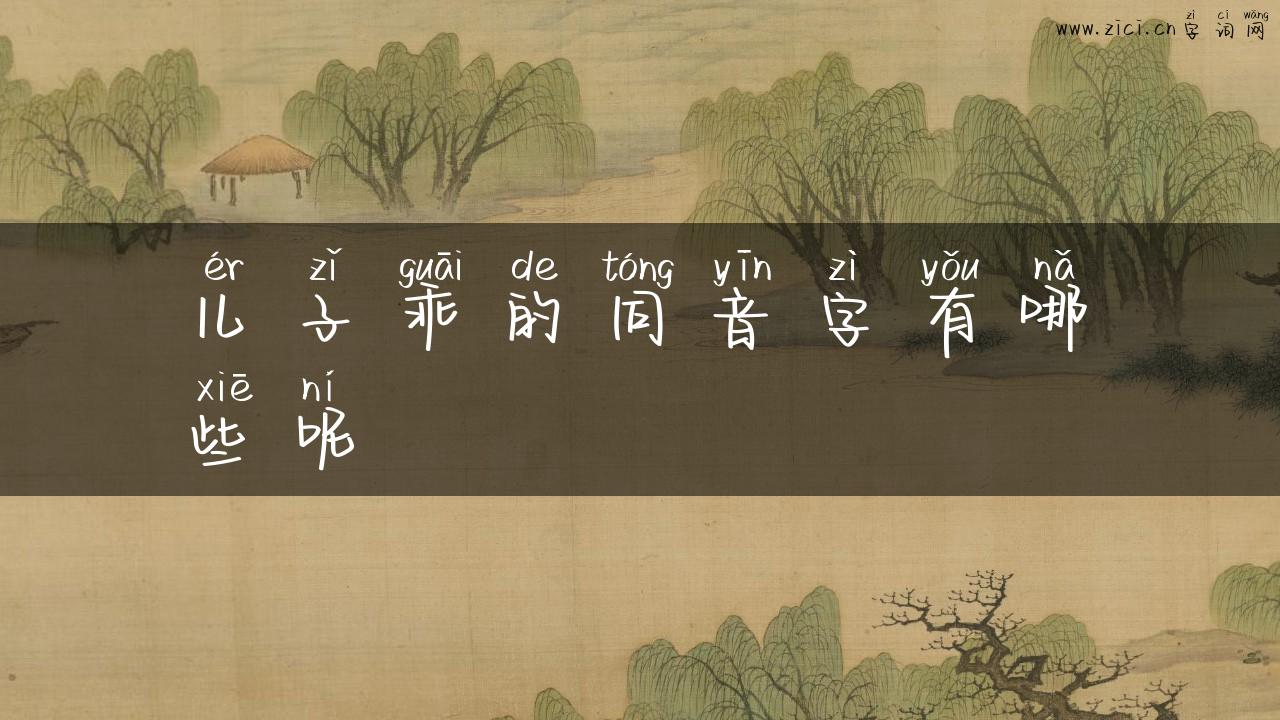 zì cí wǎng
www.zici.cn 字词网
ér zǐ guāi de tóng yīn zì yǒu nǎ
儿子乖的同音字有哪
xiē ní
些呢